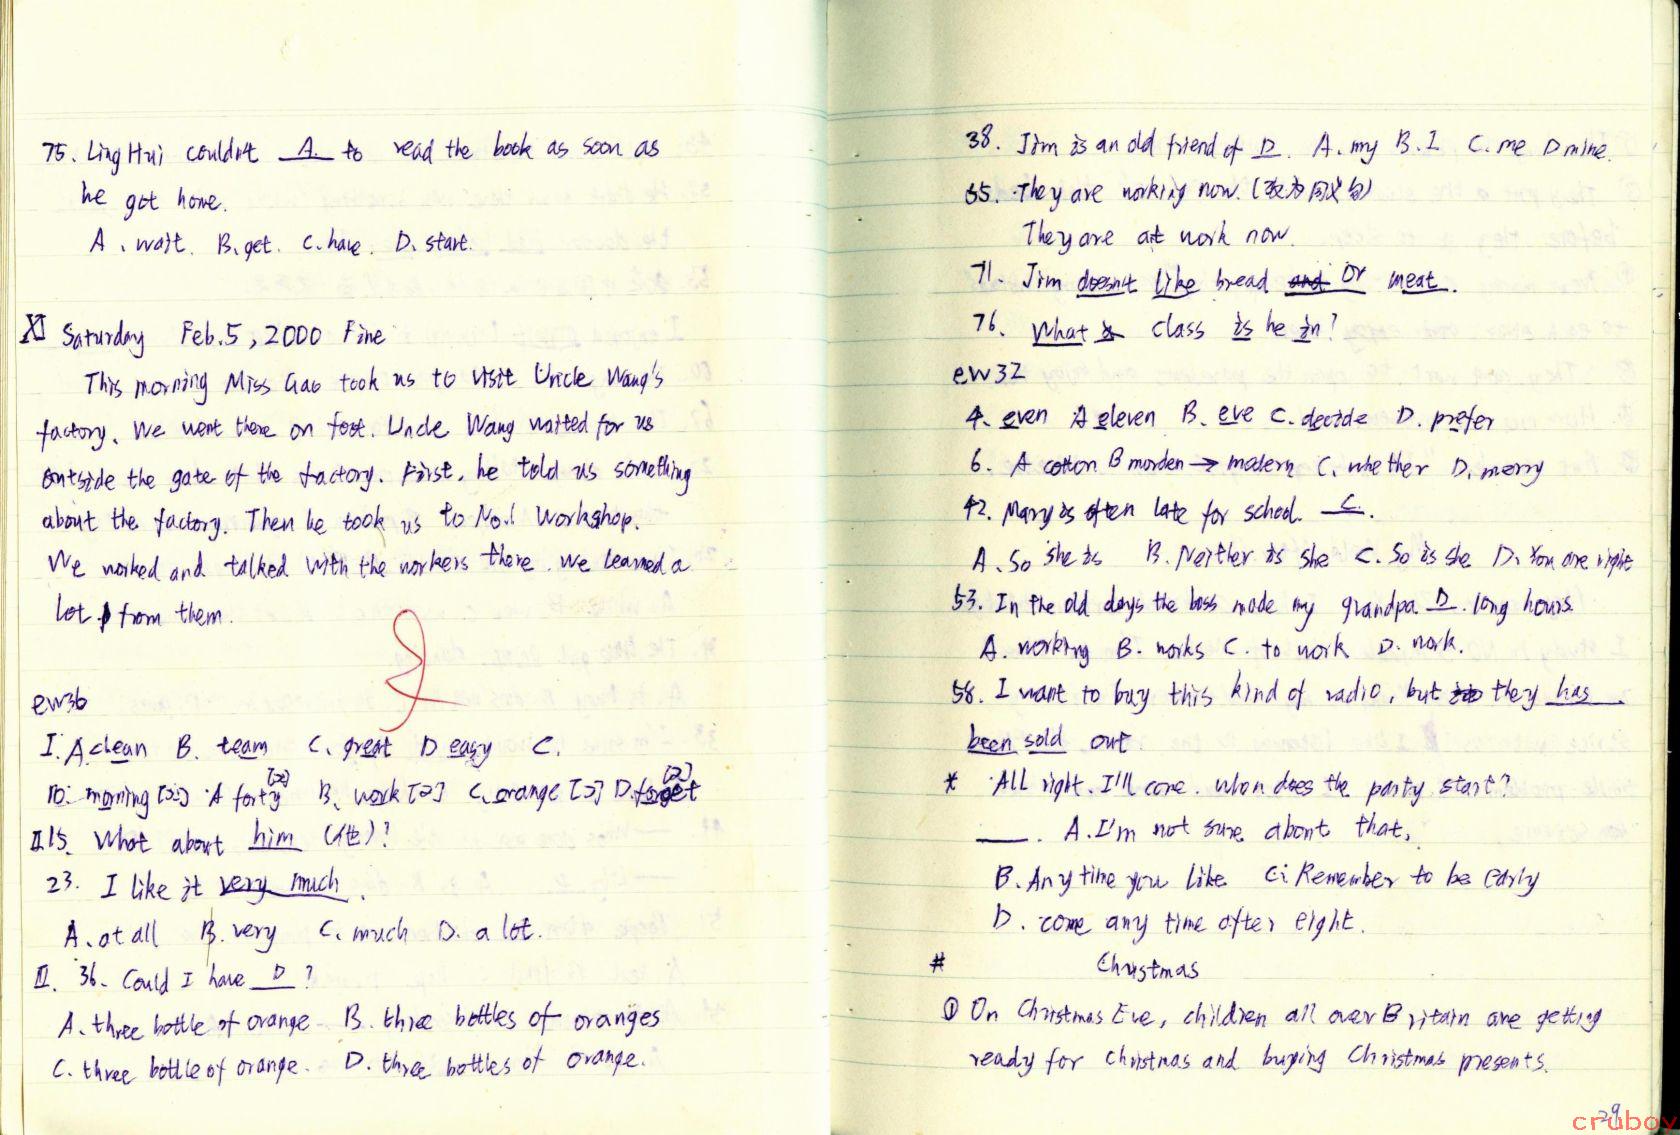 75. Ling Hui couldn't A. to read the book as soon as
he got home.
A. wait. B. get. C. have. D. start.
XI Saturday Feb. 5, 2000 Fine
This morning Miss Gao took us to visit Uncle Wang's
factory. We went there on foot. Uncle Wang waited for us
outside the gate of the factory. First, he told us something
about the factory. Then he took us to No.1 Workshop.
We worked and talked with the workers there. We learned a
lot from them.
ew36
I. A. clean B. team C. great D easy C.
10. morning [ɔ:] A forty [ɔ:] B. work [ə:] C. orange [ɔ] D. forget [ə]
II 15. What about him (他)?
23. I like it very much.
A. at all B. very C. much D. a lot.
II. 36. Could I have D ?
A. three bottle of orange B. three bottles of oranges
C. three bottle of orange. D. three bottles of orange.
38. Jim is an old friend of D. A. my B. I C. me D mine.
55. They are working now. (改为同义句)
They are at work now.
71. Jim doesn't like bread and or meat.
76. What is class is he in?
ew32
4. even A eleven B. eve C. decide D. prefer
6. A cotton B morden → modern C. whether D. merry
42. Mary is often late for school. C.
A. So she is B. Neither is she C. So is she D. You are right
53. In the old days the boss made my grandpa D. long hours.
A. working B. works C. to work D. work.
58. I want to buy this kind of radio, but they has
been sold out
* All right. I'll come. When does the party start?
___. A. I'm not sure about that.
B. Any time you like C. Remember to be early
D. come any time after eight.
# Christmas
① On Christmas Eve, children all over Britain are getting
ready for christmas and buying Christmas presents.
29
cruboy